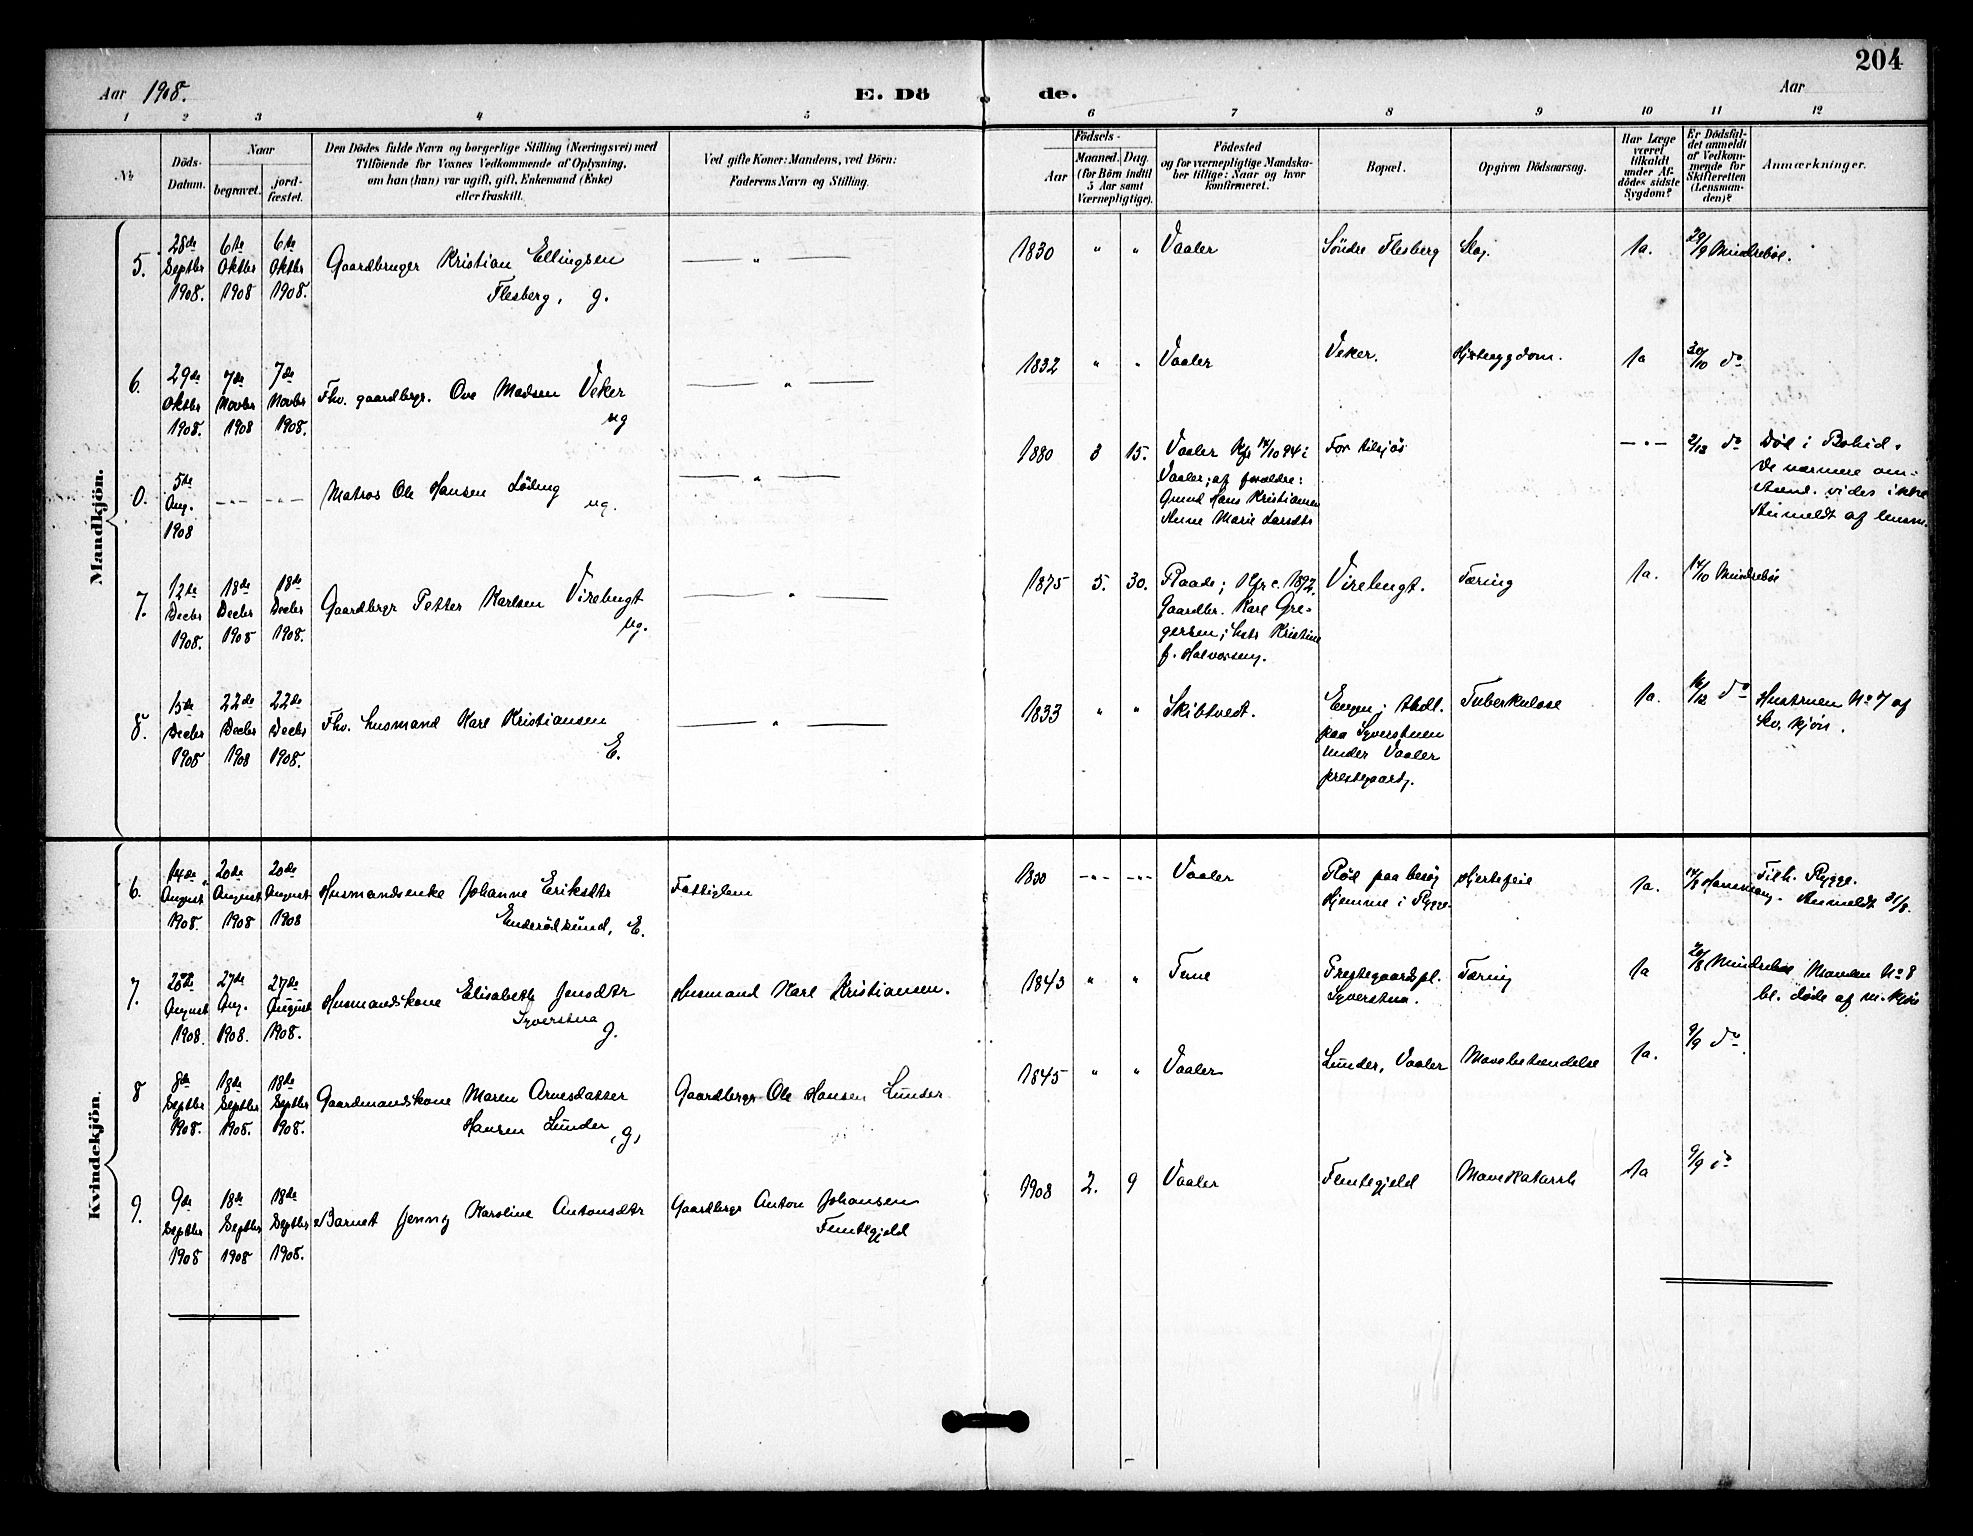 204
Aar 1908.
E. Dö de.
Aar
1 2 3 4 5 6 7 8 9 10 11 12
№
Döds-
Datum.
Naar
begravet.
jord-
fæstet.
Den Dödes fulde Navn og borgerlige Stilling (Næringsvei) med
Tilföiende for Voxnes Vedkommende af Oplysning,
om han (hun) var ugift, gift, Enkemand (Enke)
eller fraskilt.
Ved gifte Koner: Mandens, ved Börn:
Faderens Navn og Stilling.
Födsels-
Aar
Maaned. Dag
(for Börn indtil
5 Aar samt
Værnepligtige).
Födested
og for værnepligtige Mandska-
ber tillige: Naar og hvor
konfirmeret.
Bopæl.
Opgiven Dödsaarsag.
Har Læge
været
tilkaldt
under Af-
dödes sidste
Sygdom?
Er Dödsfal-
det anmeldt
af Vedkom-
mende for
Skifteretten
(Lensman-
den)?
Anmærkninger.
Mandkjön.
5.
28de
Septbr
1908.
6te
Oktbr
1908
6te
Oktbr
1908.
Gaardbruger Kristian Ellingsen
Flesberg, g.
— " —
1830 " " Vaaler
Söndre Flesberg
Slag.
Ja.
29/9 Mindrebøe.
6.
29de
Oktbr
1908.
7de
Novbr
1908
7de
Novbr
1908.
Fhv. gaardbrgr. Ove Madsen Veker
ug
— " —
1832 " " Vaaler
Veker.
Hjertesygdom.
Ja
30/10 do
0.
5te
Aug.
1908
-"- -"-
Matros Ole Hansen Löding
ug.
— " —
1880 8 15.
Vaaler Kfr 14/10 94 i
Vaaler; af forældre:
Gmd Hans Kristiansen
Anne Marie Larsdtr
—"—
2/12 do
De nærmere om-
stænd. vides ikke
Anmeldt af lensm.
7.
12te
Decbr
1908.
18de
Decbr
1908
18de
Decbr
1908.
Gaardbrgr Petter Karlsen Virebugt
ug.
— " —
1875 5. 30.
Raade; Kfr c. 1892.
Gaardbr. Karl Gre-
gersen; hstr Kristine
f. Halvorsen.
Virebugt.
Tæring
Ja.
14/10 Mindrebøe
8.
15de
Decbr
1908
22de
Decbr
1908
22de
Decbr
1908.
Fhv. husmand Karl Kristiansen
E.
— " —
1833 " " Skibtvedt.
paa Syverstuen
under Vaaler
prestegaard.
Tuberkulose
Ja.
16/12 do
Hustruen No 7 af
kv. kjøn.
Kvindekjön.
6.
14de
August
1908.
20de
August
1908
20de
August
1908
Husmandsenke Johanne Eriksdtr
E.
Fattiglem
1830 -"- -"- Vaaler
Röd paa besøg
Hjemme i Rygge.
Hjertefeil
Ja.
Tilh. Rygge.
Anmeldt 31/8.
7.
August
1908.
27de
Aug.
1908.
27de
August
1908.
Husmandskone Elisabeth Jensdtr
Syverstua g.
Husmand Karl Kristiansen.
1843 " "
Prestegaardspl.
Syverstua.
Tæring
Ja
20/8 Mindrebøe
Manden No 8
bl. døde af m.kjön
8
8de
Septbr
1908.
18de
Septbr
1908.
18de
Septbr
1908.
Gaardmandskone Maren Arnesdatter
Hansen Lunder, g,
Gaardbrgr Ole Hansen Lunder
1845 " " Vaaler
Lunder, Vaaler
Mavebetændelse
Ja.
9/9 do
9.
9de
Septbr
1908
18de
Septbr
1908
18de
Septbr
1908.
Barnet Jenny Karoline Antonsdtr
Gaardbrgr Anton Johansen
Femtegjeld
1908 2. 9 Vaaler
Femtegjeld
Mavekatarrh
Ja
9/9 do